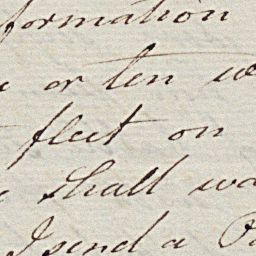 formation
or ten we
fleet on
shall wa
I send a